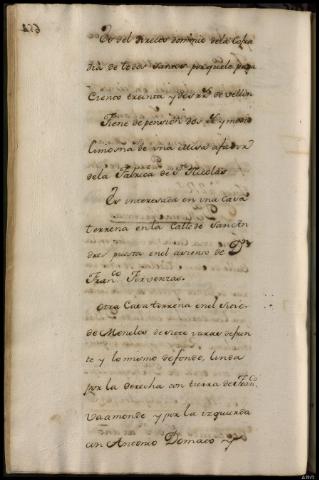 654
Es del Directo dominio dela Cofra
dia de todos Santos porquele paga
Ciento treinta y dos rrs de vellon
Tiene de pension dos Rs y medio
Limosna de una missa afavor
dela Fabrica de Sn Nicolas
Es interesada en una Casa
terrena en la Calle de San An
dres puesta en el asiento de
Franco Fervenzas.
Otra Casa terrena en el Sitio
de Monelos de siete varas defren
te y lo mismo de fondo, linda
por la derecha con tierra de Franco
Vaamonde y por la izquierda
con Antonio Domaco y